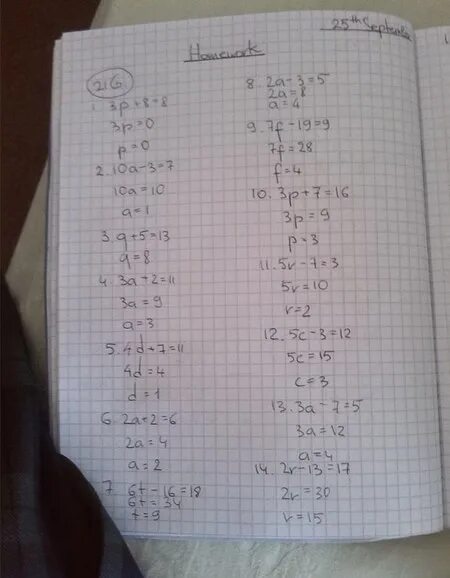 25th September
Homework
21G
1. 3p+8=8
3p=0
p=0
2. 10a-3=7
10a=10
a=1
3. q+5=13
q=8
4. 3a+2=11
3a=9
a=3
5. 4d+7=11
4d=4
d=1
6. 2a+2=6
2a=4
a=2
7. 6t-16=18
6t=34
t=9
8. 2a-3=5
2a=8
a=4
9. 7f-19=9
7f=28
f=4
10. 3p+7=16
3p=9
p=3
11. 5r-7=3
5r=10
r=2
12. 5c-3=12
5c=15
c=3
13. 3a-7=5
3a=12
a=4
14. 2r-13=17
2r=30
r=15